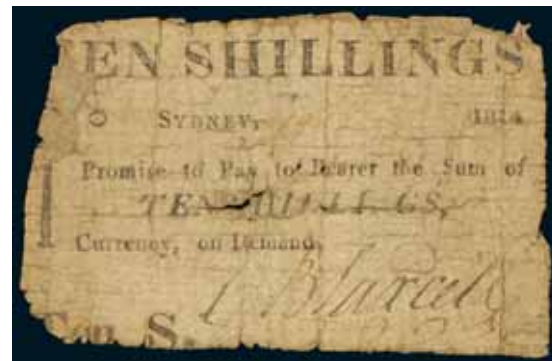 EN SHILLINGS
SYDNEY, 181
Promise to Pay to Bearer the Sum of
TEN SHILLINGS,
Currency, on Demand.
Ten S.